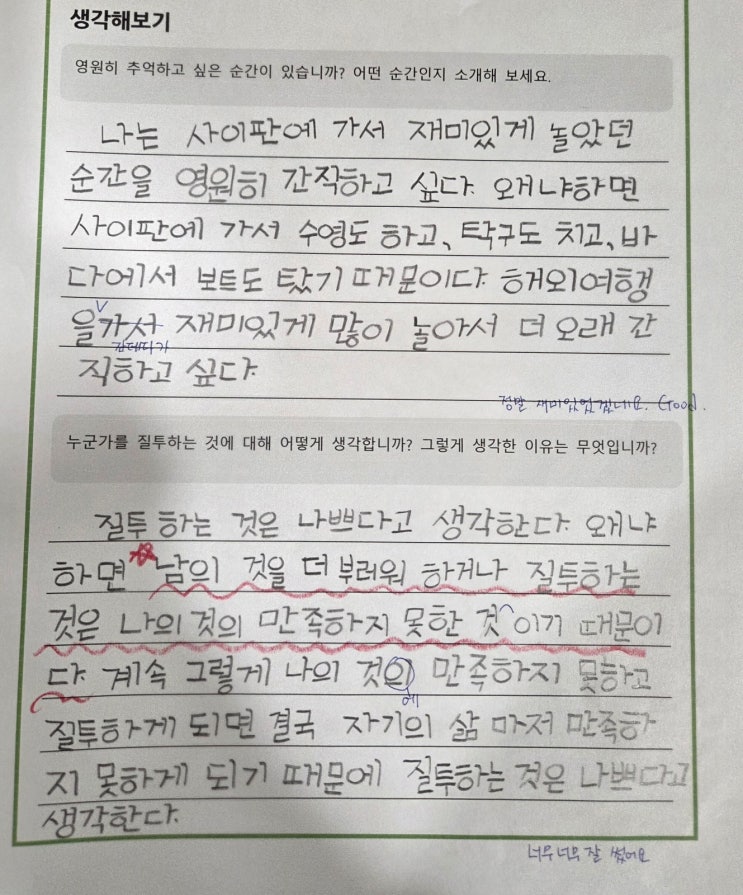 생각해보기
영원히 추억하고 싶은 순간이 있습니까? 어떤 순간인지 소개해 보세요.
나는 사이판에 가서 재미있게 놀았던
순간을 영원히 간직하고 싶다. 왜냐하면
사이판에 가서 수영도 하고, 탁구도 치고, 바
다에서 보트도 탔기 때문이다. 해외여행
을 가서 재미있게 많이 놀아서 더 오래 간
직하고 싶다.
정말 재미있었겠네요. Good.
누군가를 질투하는 것에 대해 어떻게 생각합니까? 그렇게 생각한 이유는 무엇입니까?
질투 하는 것은 나쁘다고 생각한다. 왜냐
하면 남의 것을 더 부러워 하거나 질투하는
것은 나의 것의 만족하지 못한 것이기 때문이
다. 계속 그렇게 나의 것의 만족하지 못하고
에
질투하게 되면 결국 자기의 삶 마저 만족하
지 못하게 되기 때문에 질투하는 것은 나쁘다고
생각한다.
너무너무 잘 썼어요